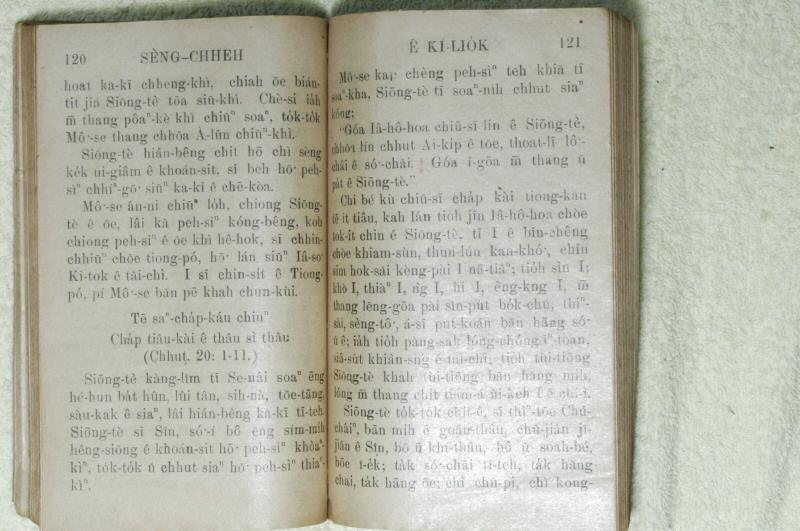 120 SÈNG-CHHEH
hoat ka-kī chheng-khì, chiah ōe bián-
tit jiá Siōng-tè tōa siū-khì. Chè-si iah
m̄ thang pôaⁿ-kè khì chiūⁿ soaⁿ, to̍k-to̍k
Mô͘-se thang chhōa À-lûn chiūⁿ-khì.
Siōng-tè hián-bêng chit hō chì sèng
ke̍k ui-giâm ê khoán-sit, sī beh hō͘ peh-
sìⁿ chhíⁿ-gō͘ siūⁿ ka-kī ê chē-kòa.
Mô͘-se án-ni chiūⁿ lo̍h, chiong Siōng-
tè ê ōe, lâi kā peh-sìⁿ kóng-bêng, koh
chiong peh-sìⁿ ê ōe khì hê-hok, sī chhin-
chhiūⁿ chòe tiong-pó, hō͘ lán siūⁿ Iâ-so͘
Ki-tok ê tāi-chì. I sī chin-sit ê Tiong-
pó, pí Mô͘-se bān pē khah chun-kùi.
Tē saⁿ-cha̍p-káu chiuⁿ
Cha̍p tiâu-kài ê thâu sì thâu
(Chhut. 20: 1-11.)
Siōng-tè kàng-lîm tī Se-nái soaⁿ ēng
hé-hun ba̍t hûn, lûi tân, sih-nà, tōe-tāng,
sàu-kak ê siaⁿ, lâi hián-bêng ka-kī tī-teh.
Siōng-tè sī Sîn, só͘-í bô ēng sím-mih
hêng-siōng ê khoán-sit hō͘ peh-sìⁿ khòaⁿ-
kìⁿ, to̍k-to̍k ū chhut siaⁿ hō͘ peh-sìⁿ thiaⁿ-
kìⁿ.
Ê KÌ-LIO̍K 121
Mô͘-se kap chèng peh-sìⁿ teh khiā tī
soaⁿ-kha, Siōng-tè tī soaⁿ-nih chhut siaⁿ
kóng;
"Góa Iâ-hô-hoa chiū-sī lín ê Siōng-tè,
chhōa lín chhut Ai-ki̍p ê tōe, thoat-lī lô͘-
châi ê só͘-chāi. Góa í-gōa m̄ thang ū
pa̍t ê Siōng-tè."
Chí bé kù chiū-sī cha̍p kài tiong-kan
tē it tiâu, kah lán tio̍h jīn Iâ-hô-hoa chòe
to̍k-it chin ê Siōng-tè, tī I ê bīn-chêng
chòe khiam-sùn, thun-lún kan-khó͘, chīn
sim ho̍k-sāi kèng-pài I nā-tiāⁿ; tio̍h sìn I;
khò I, thiàⁿ I, n̄g I, ùi I, êng-kng I, m̄
thang lēng-gōa pài sin-pu̍t bo̍k-chú, thiⁿ-
sài, sèng-tô͘, á-sī pu̍t-koán bān hāng só͘-
ū ê; ia̍h tio̍h pàng-sak lóng-chóng i-toan,
siâ-su̍t khiàn-sńg ê tāi-chì, tio̍h tùi-tiōng
Siōng-tè khah tùi-tiōng bān hāng mih,
lóng m̄ thang chit
Siōng-tè to̍k-to̍k chi̍t-ê, sī thiⁿ-tōe Chú-
cháiⁿ, bān mih ê goân-thâu, chū-jiân jî-
jiân ê Sîn, bô ū khí-thâu, bô ū soah-bé,
bōe î-e̍k; ta̍k só͘-chāi tī-teh, ta̍k hāng
chai, ta̍k hāng ōe; chì chû-pi, chì kong-